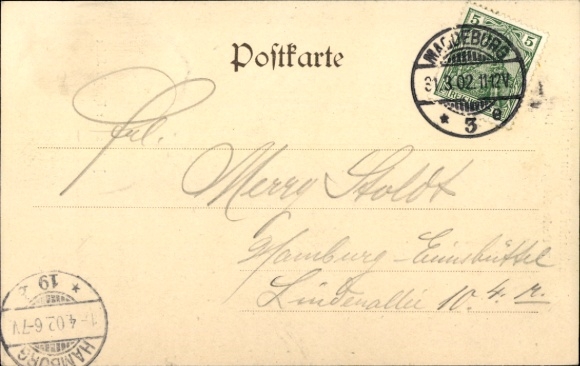 Postkarte
5 5
MAGDEBURG
31.3.02.11-12V.
* 3 e
Frl.
Merry Stoldt
Hamburg-Eimsbüttel
Lindenallee 10. 4. r.
* 19
1-4.02.6-7V
HAMBURG